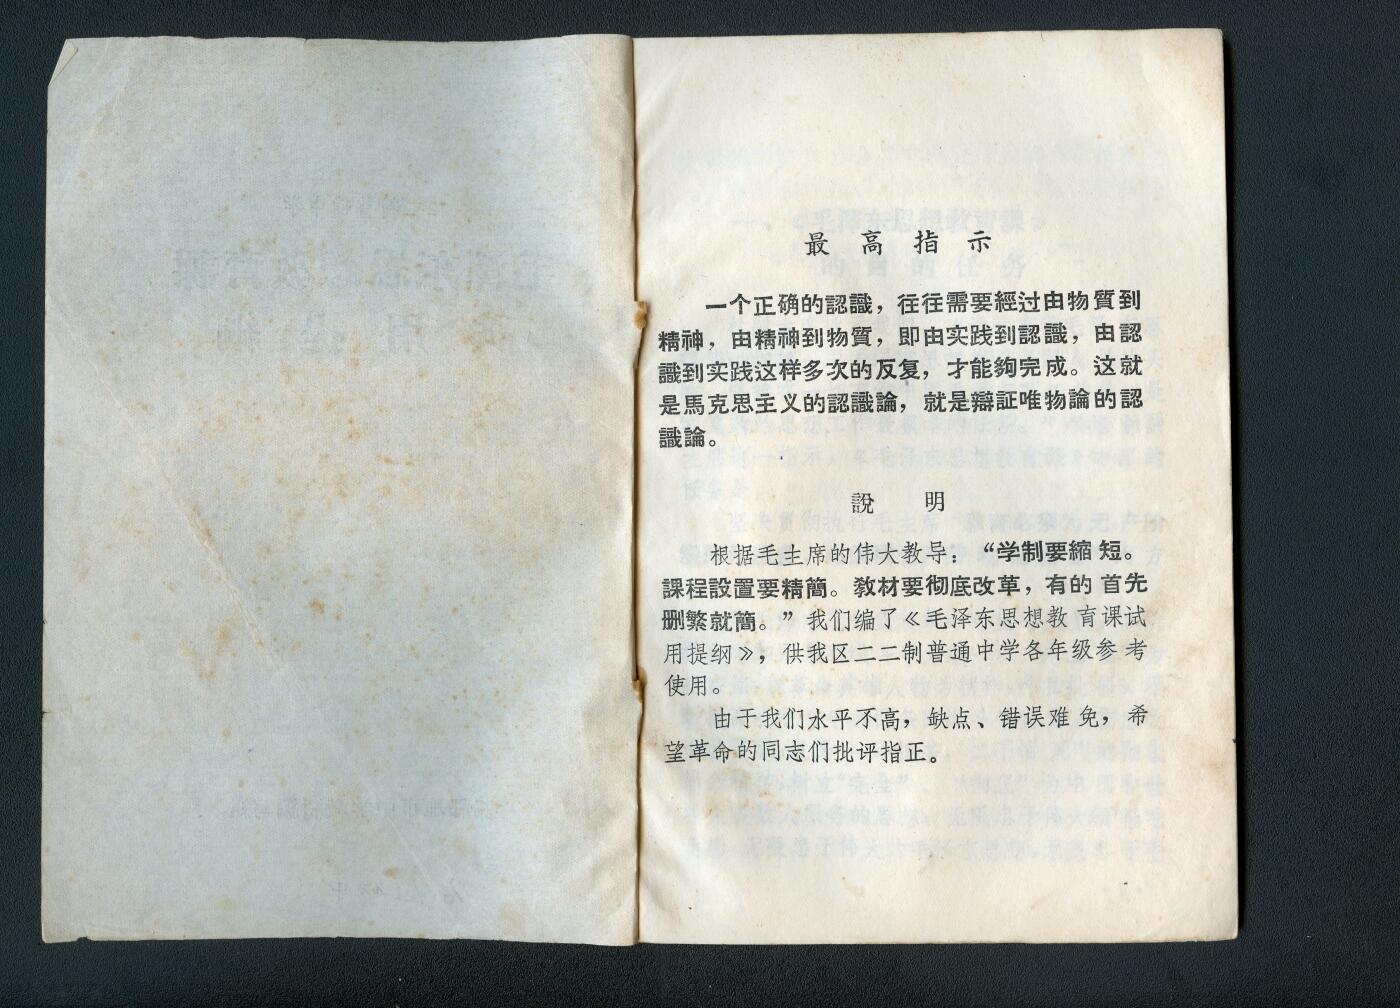 最高指示
一个正确的認識，往往需要經过由物質到
精神，由精神到物質，即由实践到認識，由認
識到实践这样多次的反复，才能夠完成。这就
是馬克思主义的認識論，就是辯証唯物論的認
識論。
說明
根据毛主席的伟大教导：“学制要縮短。
課程設置要精簡。教材要彻底改革，有的首先
删繁就簡。”我们编了《毛泽东思想教育课试
用提纲》，供我区二二制普通中学各年级参考
使用。
由于我们水平不高，缺点、错误难免，希
望革命的同志们批评指正。